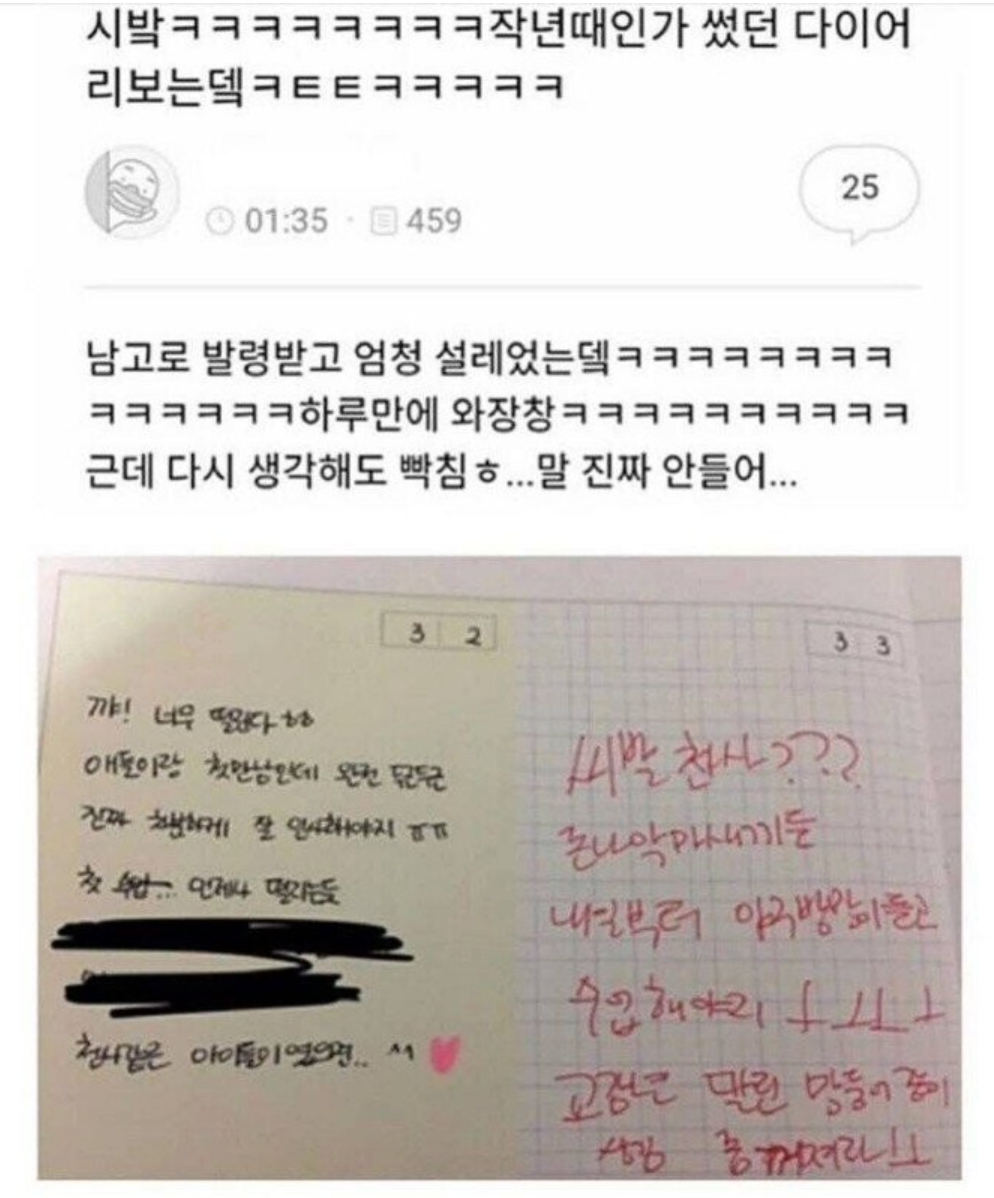 시밬ㅋㅋㅋㅋㅋㅋㅋㅋ작년때인가 썼던 다이어
리보는뎈ㅋㅌㅌㅋㅋㅋㅋㅋ
01:35 · 459
25
남고로 발령받고 엄청 설레었는뎈ㅋㅋㅋㅋㅋㅋㅋㅋ
ㅋㅋㅋㅋㅋㅋ하루만에 와장창ㅋㅋㅋㅋㅋㅋㅋㅋㅋㅋ
근데 다시 생각해도 빡침ㅎ...말 진짜 안들어...
3 2
꺄! 너무 떨린다 ㅎㅎ
애들이랑 첫만남인데 완전 두근두근
진짜 차분하게 잘 인사해야지 ㅠㅠ
첫 수업... 언제나 떨리는듯
천사같은 아이들이였으면.. ^^
3 3
씨발 천사???
존나악마새끼들
내일부터 야구방망이들고
수업해야지 ㅗㅗㅜㅗ
교장은 말린 망둥어 같이
생김